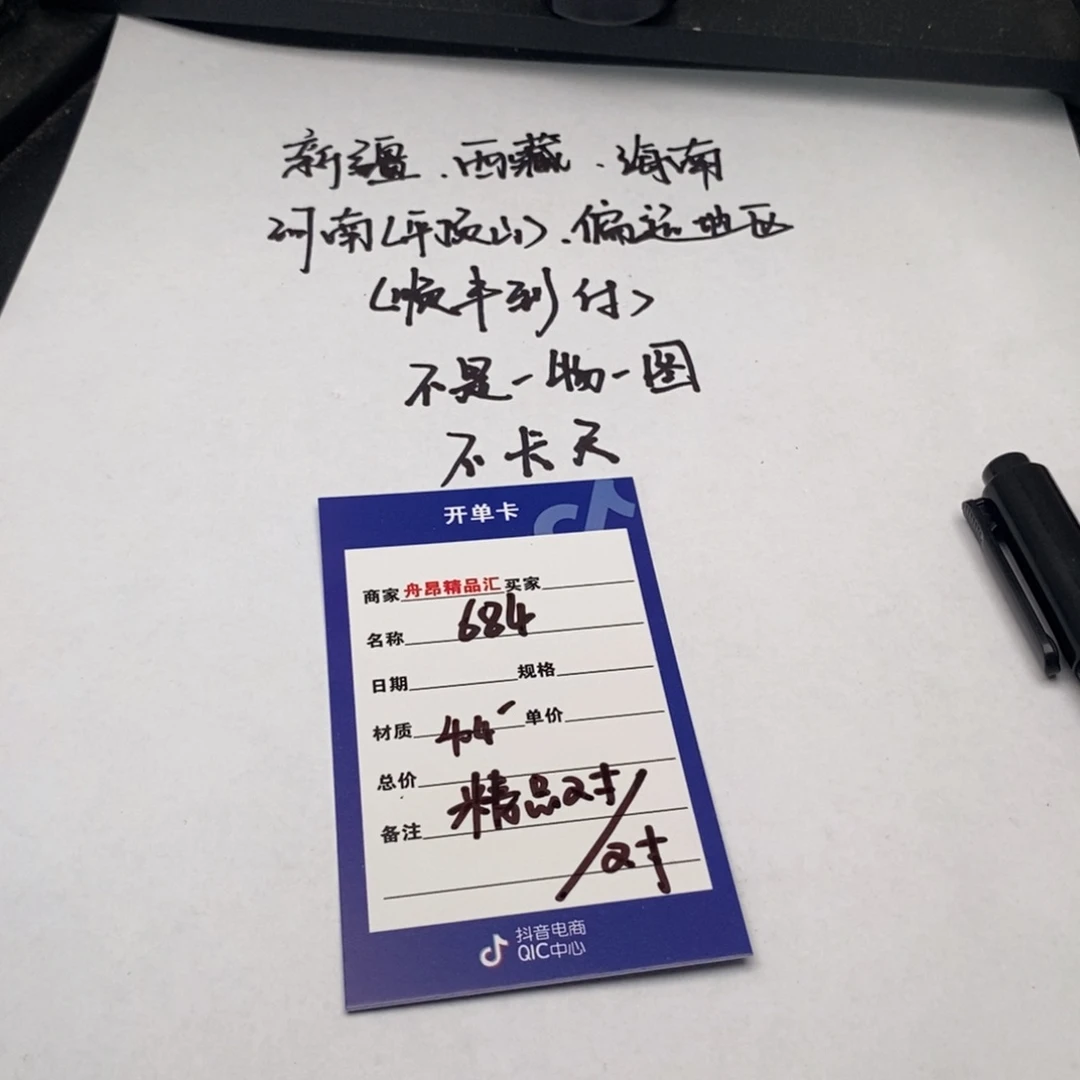 新疆.西藏.海南
河南(平顶山).偏远地区
(顺丰到付)
不是一物一图
不卡天
开单卡
商家 舟昂精品汇 买家
名称 684
日期 规格
材质 404 单价
总价
备注 精品对/对
抖音电商
QIC中心